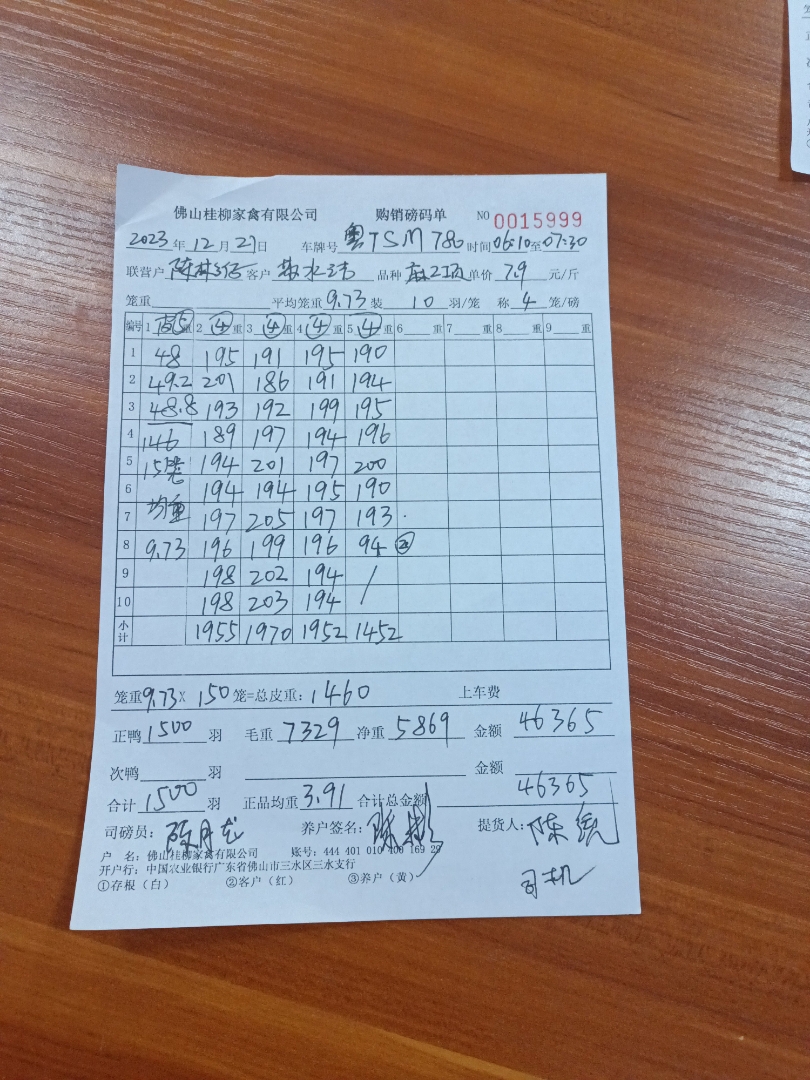 佛山桂柳家禽有限公司 购销磅码单 NO 0015999
2023 年 12 月 27 日 车牌号 粤TSM780 时间 06:10 至 07:30
联营户 客户 品种 单价 7.9 元/斤
笼重 平均笼重 9.73 装 10 羽/笼 称 4 笼/磅
编号 1 ⑤ 重 2 ④ 重 3 ④ 重 4 ④ 重 5 ④ 重 6 重 7 重 8 重 9 重
1 48 195 191 195 190
2 49.2 201 186 191 194
3 48.8 193 192 199 195
4 146 189 197 194 196
5 15笼 194 201 197 200
6 194 194 195 190
7 均重 197 205 197 193
8 9.73 196 199 196 94 ②
9 198 202 194 /
10 198 203 194 /
小计 1955 1970 1952 1452
笼重 9.73 X 150 笼=总皮重: 1460 上车费
正鸭 1500 羽 毛重 7329 净重 5869 金额 46365
次鸭 羽 金额
合计 1500 羽 正品均重 3.91 合计总金额 46365
司磅员: 养户签名: 提货人:
户 名: 佛山桂柳家禽有限公司 账号: 444 401 010 400 169 29
开户行: 中国农业银行广东省佛山市三水区三水支行
①存根（白） ②客户（红） ③养户（黄）
司机